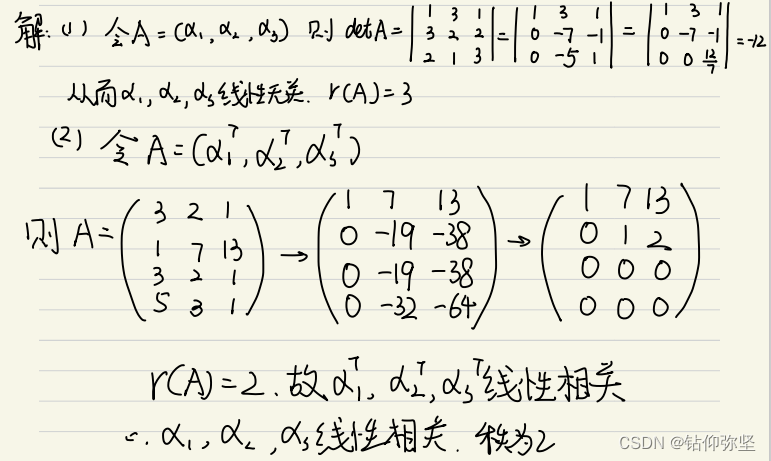 解:(1) 令A=(α₁,α₂,α₃) 则 detA=|1 3 1; 3 2 2; 2 1 3|=|1 3 1; 0 -7 -1; 0 -5 1|=|1 3 1; 0 -7 -1; 0 0 12/7|=-12
从而α₁,α₂,α₃线性无关. r(A)=3
(2) 令 A=(α₁ᵀ,α₂ᵀ,α₃ᵀ)
则 A=(3 2 1; 1 7 13; 3 2 1; 5 3 1)→(1 7 13; 0 -19 -38; 0 -19 -38; 0 -32 -64)→(1 7 13; 0 1 2; 0 0 0; 0 0 0)
r(A)=2.故α₁ᵀ,α₂ᵀ,α₃ᵀ线性相关
∴α₁,α₂,α₃线性相关.秩为2
CSDN @钻仰弥坚